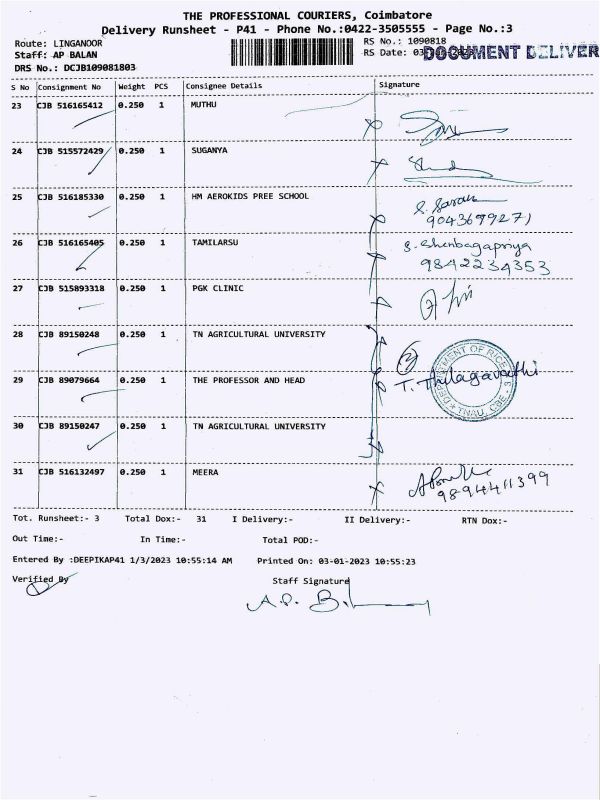 THE PROFESSIONAL COURIERS, Coimbatore
Delivery Runsheet - P41 - Phone No.:0422-3505555 - Page No.:3
Route: LINGANOOR
RS No.: 1090818
Staff: AP BALAN
RS Date: 03-
DOCUMENT DELIVER
DRS No.: DCJB109081803
S No Consignment No Weight PCS Consignee Details Signature
23 CJB 516165412 0.250 1 MUTHU
24 CJB 515572429 0.250 1 SUGANYA
25 CJB 516185330 0.250 1 HM AEROKIDS PREE SCHOOL
S. Saran
9043699271
26 CJB 516165405 0.250 1 TAMILARSU
S. Shenbagapriya
9842234353
27 CJB 515893318 0.250 1 PGK CLINIC
28 CJB 89150248 0.250 1 TN AGRICULTURAL UNIVERSITY
3
DEPARTMENT OF RICE
TNAU, CBE - 3
29 CJB 89079664 0.250 1 THE PROFESSOR AND HEAD
T. Thilagavathi
30 CJB 89150247 0.250 1 TN AGRICULTURAL UNIVERSITY
31 CJB 516132497 0.250 1 MEERA
9894411399
Tot. Runsheet:- 3 Total Dox:- 31 I Delivery:- II Delivery:- RTN Dox:-
Out Time:- In Time:- Total POD:-
Entered By :DEEPIKAP41 1/3/2023 10:55:14 AM Printed On: 03-01-2023 10:55:23
Verified By Staff Signature